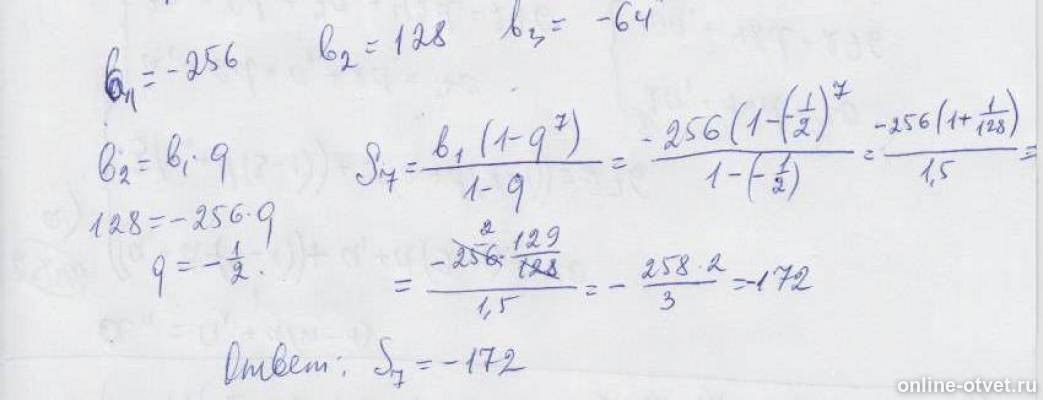 b₁ = -256   b₂ = 128   b₃ = -64
b₂ = b₁ · q   S₇ = b₁(1-q⁷)/(1-q) = -256(1-(-1/2)⁷/(1-(-1/2)) = -256(1+1/128)/1,5 =
128 = -256 · q
q = -1/2.   = -256 · 129/128 / 1,5 = - 258·2/3 = -172
2
Ответ: S₇ = -172
online-otvet.ru